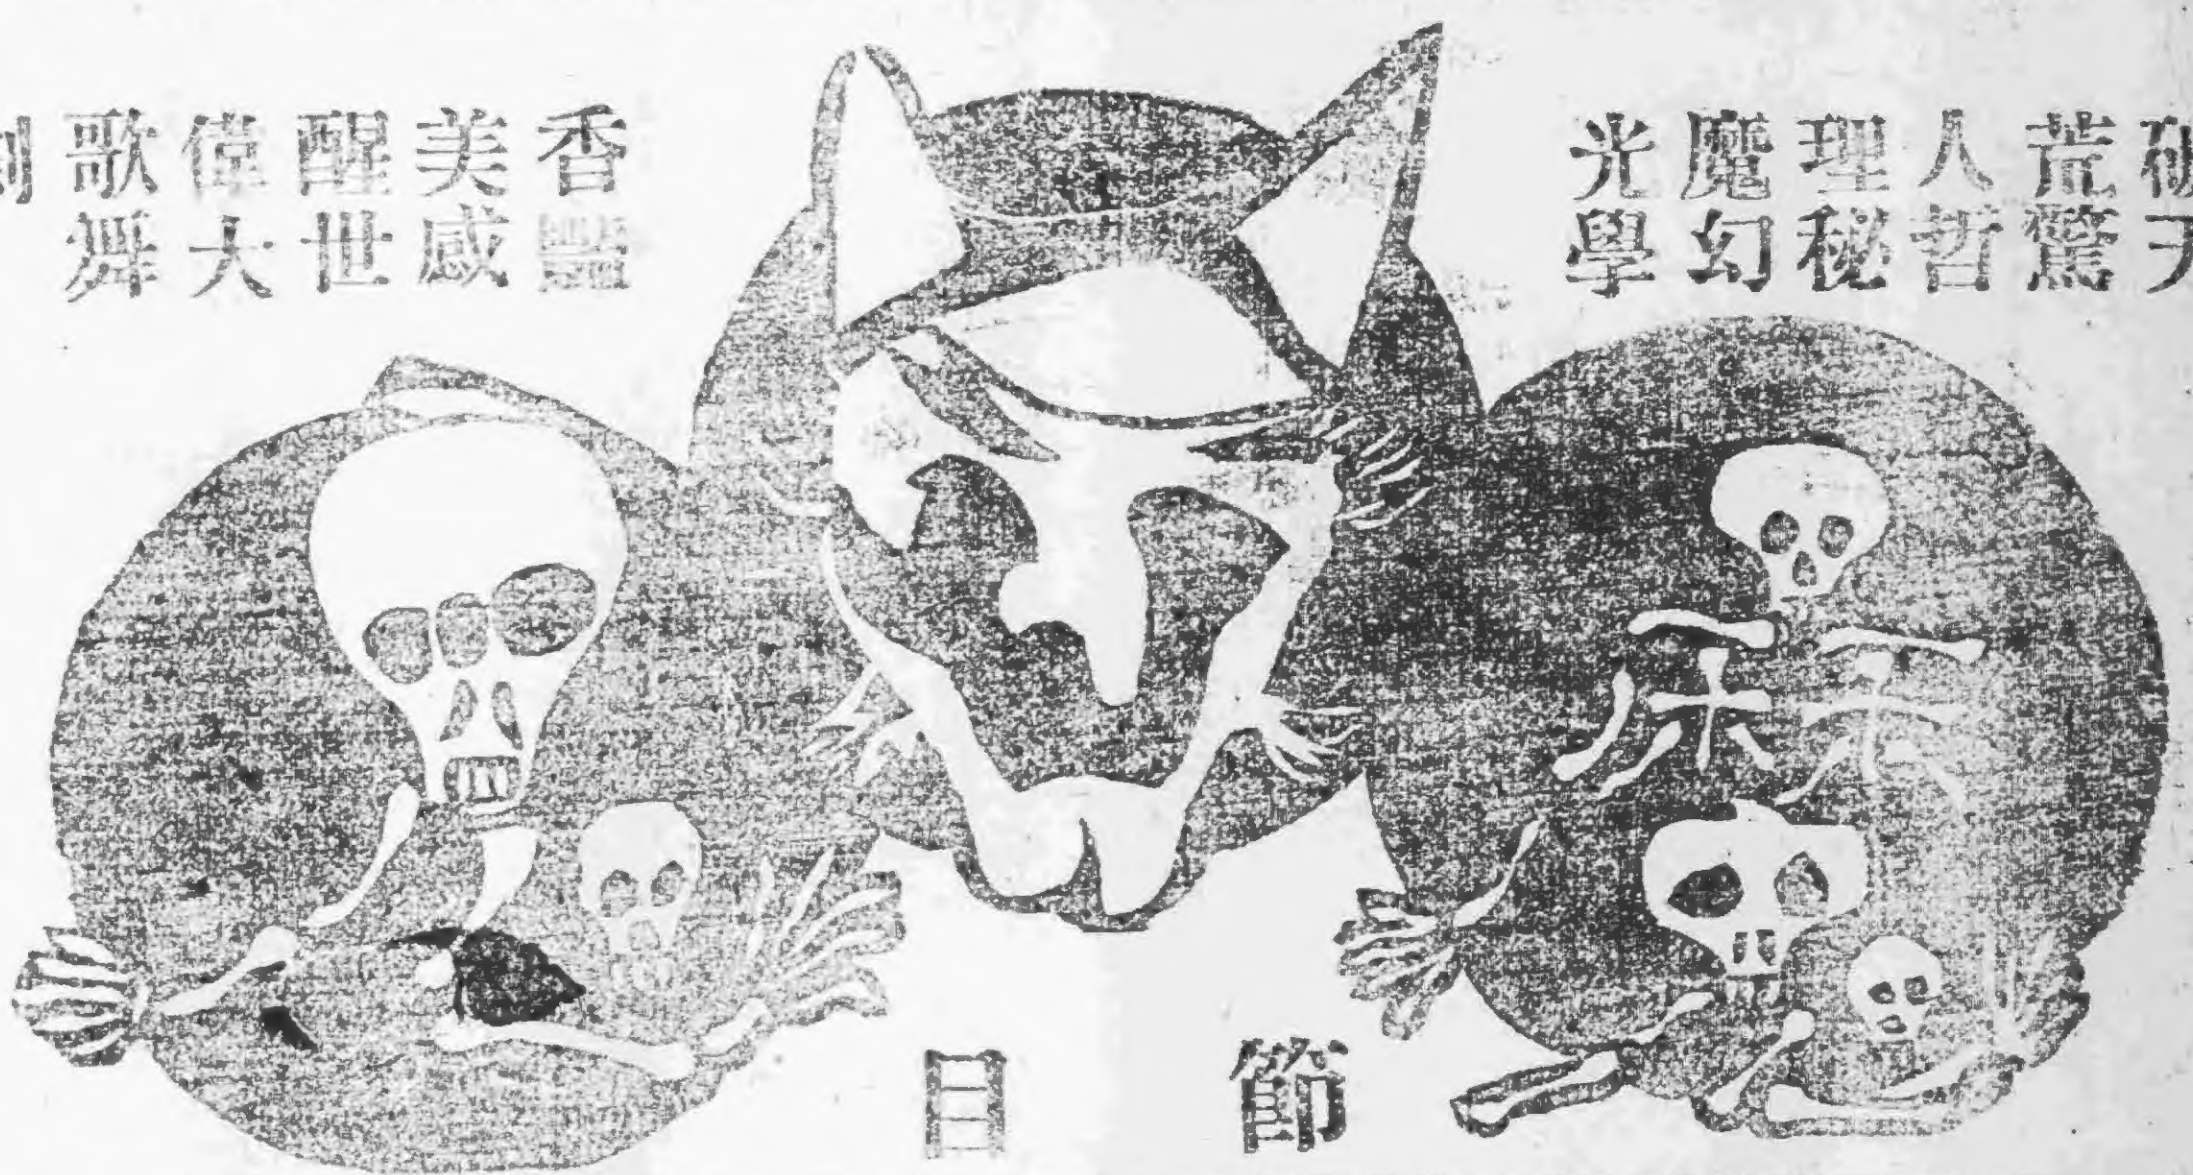 破天
荒驚
人哲
理秘
魔幻
光學
香豔
美感
醒世
偉大
歌舞
節目